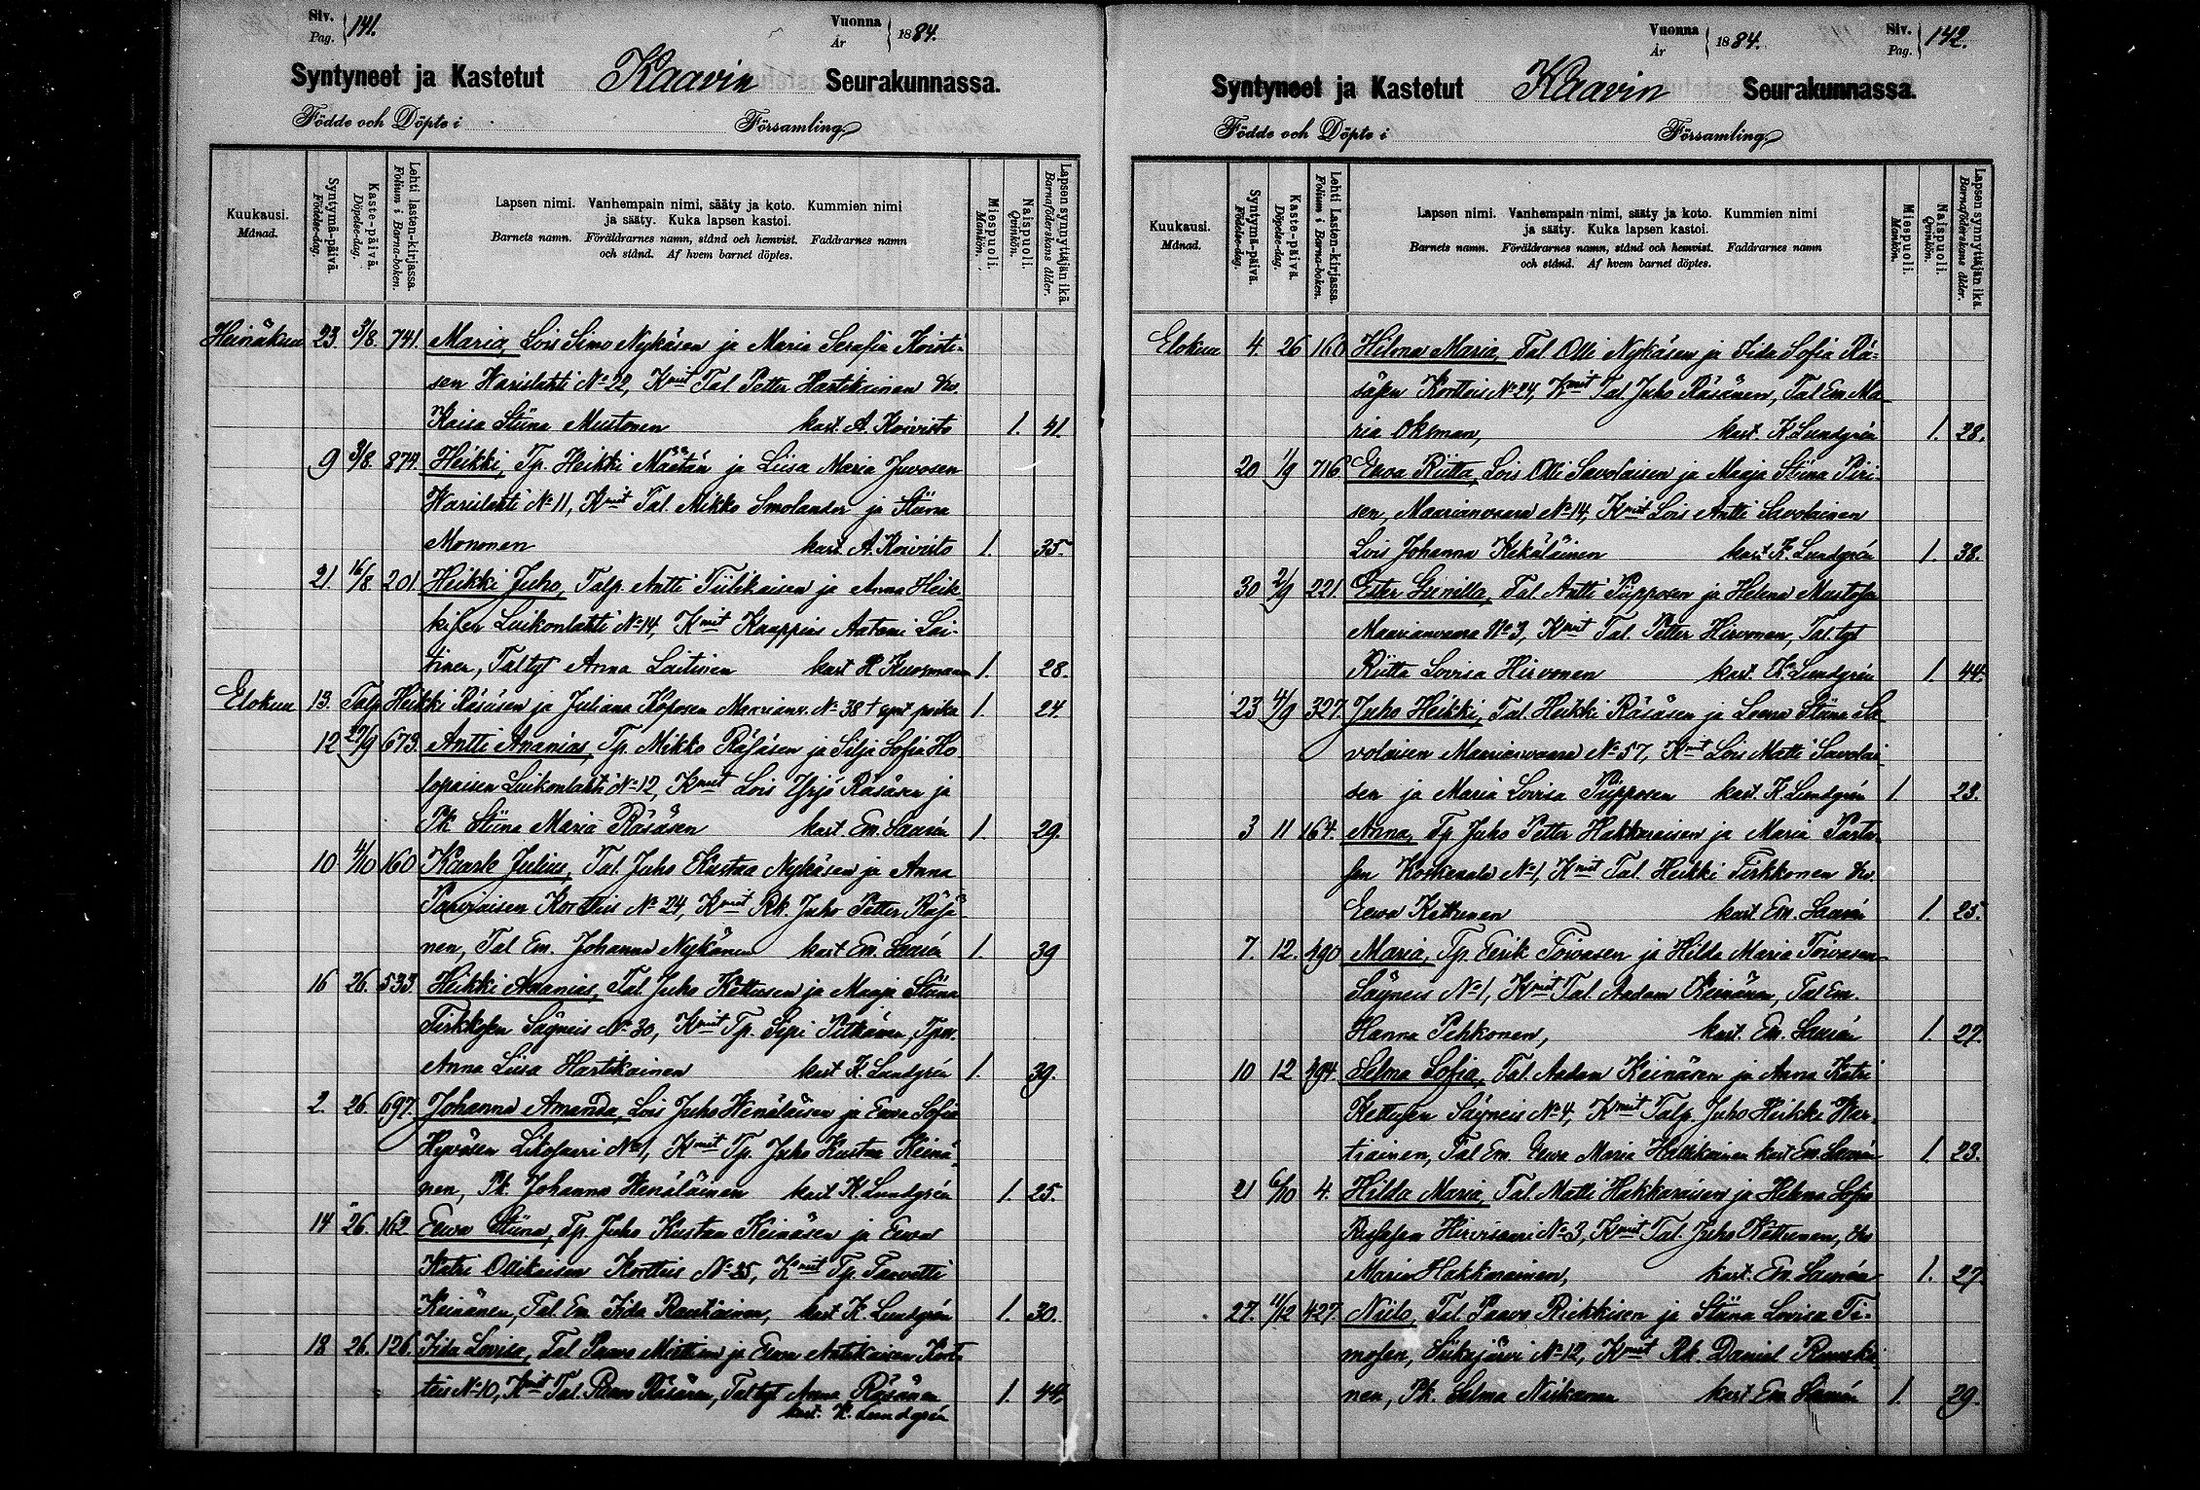 Siv. Pag. 141. Vuonna År 1884.
Syntyneet ja Kastetut Kaavin Seurakunnassa.
Födde och Döpte i Församling
Kuukausi. Månad.
Syntymä-päivä. Födelse-dag.
Kaste-päivä. Döpelse-dag.
Lehti lasten-kirjassa. Folium i Barna-boken.
Lapsen nimi. Vanhempain nimi, sääty ja koto. Kummien nimi
ja sääty. Kuka lapsen kastoi.
Barnets namn. Föräldrarnes namn, stånd och hemvist. Faddrarnes namn
och stånd. Af hvem barnet döptes.
Miespuoli. Mankön.
Naispuoli. Qvinkön.
Lapsen synnyttäjän ikä. Barnaföderskans ålder.
Heinäkuu 23. 3/8. 741. Maria, Lois Simo Nykäsen ja Maria Serafia Koisti-
sen Warislahti No 22, Kmit Tal. Petter Hartikainen
Kaisa Stiina Mustonen kast. A. Koivisto 1. 41.
9 3/8. 874. Heikki, Tp. Heikki Määtän ja Liisa Maria Juvosen
Warislahti No 11, Kmit Tal. Mikko Smolander ja Stiina
Mononen kast. A. Koivisto 1. 35.
21. 16/8. 201. Heikki Juho, Talp. Antti Tiilikaisen ja Anna Heik-
kisen Luikonlahti No 14, Kmit Kauppias Aatami Lai-
tinen, Tal tyt Anna Laitinen kast H Kuosmanen 1. 28.
Elokuu 13. Talp Heikki Räsäsen ja Juliana Kososen Maarianv. No 38 † synt poika 1. 24.
12 27/9 673. Antti Ananias, Tp. Mikko Räsäsen ja Silja Sofia Ho-
lopaisen Luikonlahti No 12, Kmit Lois Yrjö Räsäsen ja
Pk Stiina Maria Räsäsen kast Em. Laurén 1. 29.
10 4/10 160 Kaarle Julius, Tal. Juho Kustaa Nykäsen ja Anna
Parviaisen Kortteis No 24, Kmit Rk. Juho Petter Räsä-
nen, Tal Em. Johanna Nykänen kast Em. Laurén 1. 39
16 26. 533 Heikki Ananias, Tal. Juho Kettusen ja Maaja Stiina
Tirkkosen Säyneis No 30, Kmit Tp. Sipi Pitkänen, Tpv.
Anna Liisa Hartikainen kast K. Lundgrén 1. 39.
2. 26. 697. Johanna Amanda, Lois Juho Wenäläisen ja Eeva Sofia
Hyvösen Litosaari No 1, Kmit Tp. Juho Kustaa Keinä-
nen, Pk. Johanna Wenäläinen kast K. Lundgrén 1. 25.
14 26. 162 Eeva Stiina, Tp. Juho Kustaa Keinäsen ja Eeva
Katri Ollikaisen Kortteis No 25, Kmit Tp. Taavetti
Keinänen, Tal. Em Iida Rautiainen, kast K. Lundgrén 1. 30.
18 26. 126. Iida Lovisa, Tal Paavo Miettisen ja Eeva Antikaisen Kort-
teis No 10, Kmit Tal. Paavo Räsänen, Tal tyt Anna Räsänen 1. 44.
kast. K. Lundgrén
Siv. Pag. 142. Vuonna År 1884.
Syntyneet ja Kastetut Kaavin Seurakunnassa.
Födde och Döpte i Församling
Kuukausi. Månad.
Syntymä-päivä. Födelse-dag.
Kaste-päivä. Döpelse-dag.
Lehti Lasten-kirjassa. Folium i Barna-boken.
Lapsen nimi. Vanhempain nimi, sääty ja koto. Kummien nimi
ja sääty. Kuka lapsen kastoi.
Barnets namn. Föräldrarnes namn, stånd och hemvist. Faddrarnes namn
och stånd. Af hvem barnet döptes.
Miespuoli. Mankön.
Naispuoli. Qvinkön.
Lapsen synnyttäjän ikä. Barnaföderskans ålder.
Elokuu 4. 26 160 Hilma Maria, Tal. Olli Nykäsen ja Iida Sofia Rä-
säsen Kortteis No 24, Kmit Tal. Juho Räsänen, Tal Em Ma-
ria Oksman, kast. K. Lundgrén 1. 28.
20 1/9 716 Eeva Riitta, Lois Olli Savolaisen ja Maaja Stiina Piri-
sen, Maarianvaara No 14, Kmit Lois Antti Savolainen
Lois Johanna Kekäläinen kast. K. Lundgrén 1. 38.
30 2/9 221. Ester Gunilla, Tal. Antti Piipposen ja Helena Mustosen
Maarianvaara No 3, Kmit Tal. Petter Hirvonen, Tal. tyt
Riitta Lovisa Hirvonen kast. K. Lundgrén 1. 44.
23 4/9 327. Juho Heikki, Tal. Heikki Räsäsen ja Leena Stiina Sa-
volaisen Maarianvaara No 57, Kmit Lois Matti Savolai-
sen ja Maria Lovisa Piipposen kast. K. Lundgrén 1. 23.
3 11 164. Anna, Tp. Juho Petter Hakkaraisen ja Maria Parta-
sen Kosken No 1, Kmit Tal. Heikki Tirkkonen
Eeva Kettunen kast. Em. Laurén 1. 25.
7. 12. 490 Maria, Tp. Eerik Toivasen ja Hilda Maria Toivasen
Säyneis No 1, Kmit Tal. Aadam Keinänen, Tal Em.
Hanna Pehkonen, kast. Em. Laurén 1. 27.
10 12 494. Selma Sofia, Tal. Aadam Keinäsen ja Anna Katri
Kettusen Säyneis No 4, Kmit Talp. Juho Heikki War-
tiainen, Tal Em. Eeva Maria Hallikainen kast Em. Laurén 1. 23.
21 6/10 4. Hilda Maria, Tal. Matti Hakkaraisen ja Helena Sofia
Rissasen Hirvisaari No 3, Kmit Tal. Juho Kettunen,
Maria Hakkarainen, kast. Em. Laurén 1. 27
27. 11/12 427. Niilo, Tal. Paavo Riekkisen ja Stiina Lovisa Ti-
mosen, Siikajärvi No 12, Kmit Rk. Daniel Rauski-
nen, Pk. Selma Niskanen kast Em. Laurén 1. 29.